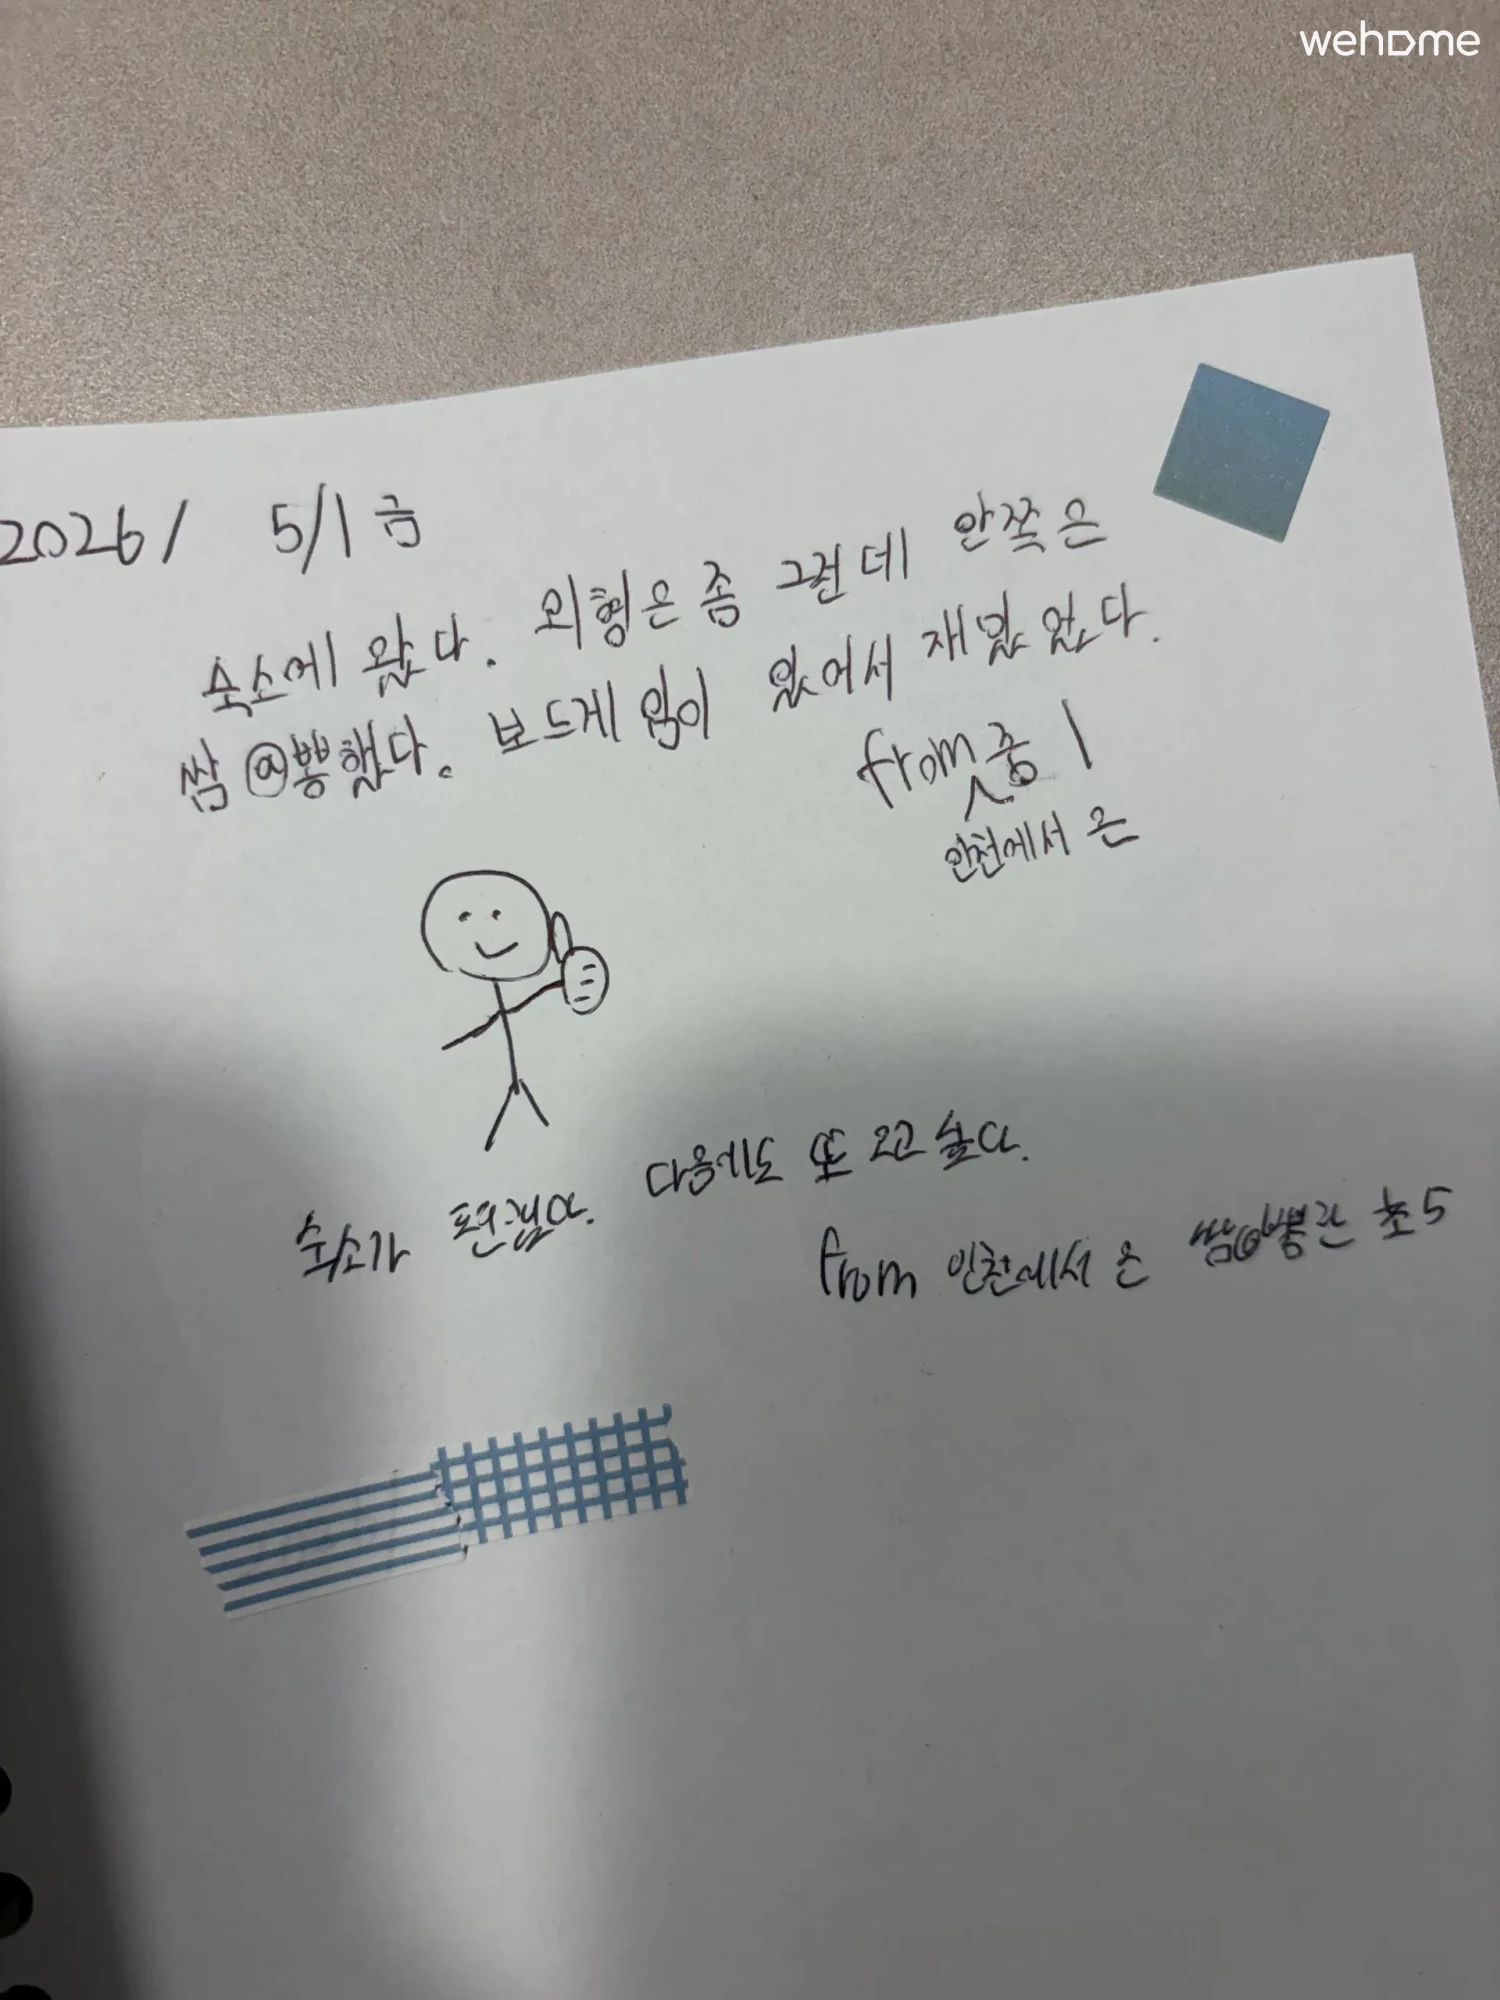 wehome
2026/ 5/1 금
숙소에 왔다. 외형은 좀 그런데 안쪽은
쌈@뽕했다. 보드게임이 있어서 재밌었다.
from 중1
인천에서 온
숙소가 편했다. 다음에도 또 오고 싶다.
from 인천에서 온 쌈@뽕한 초5